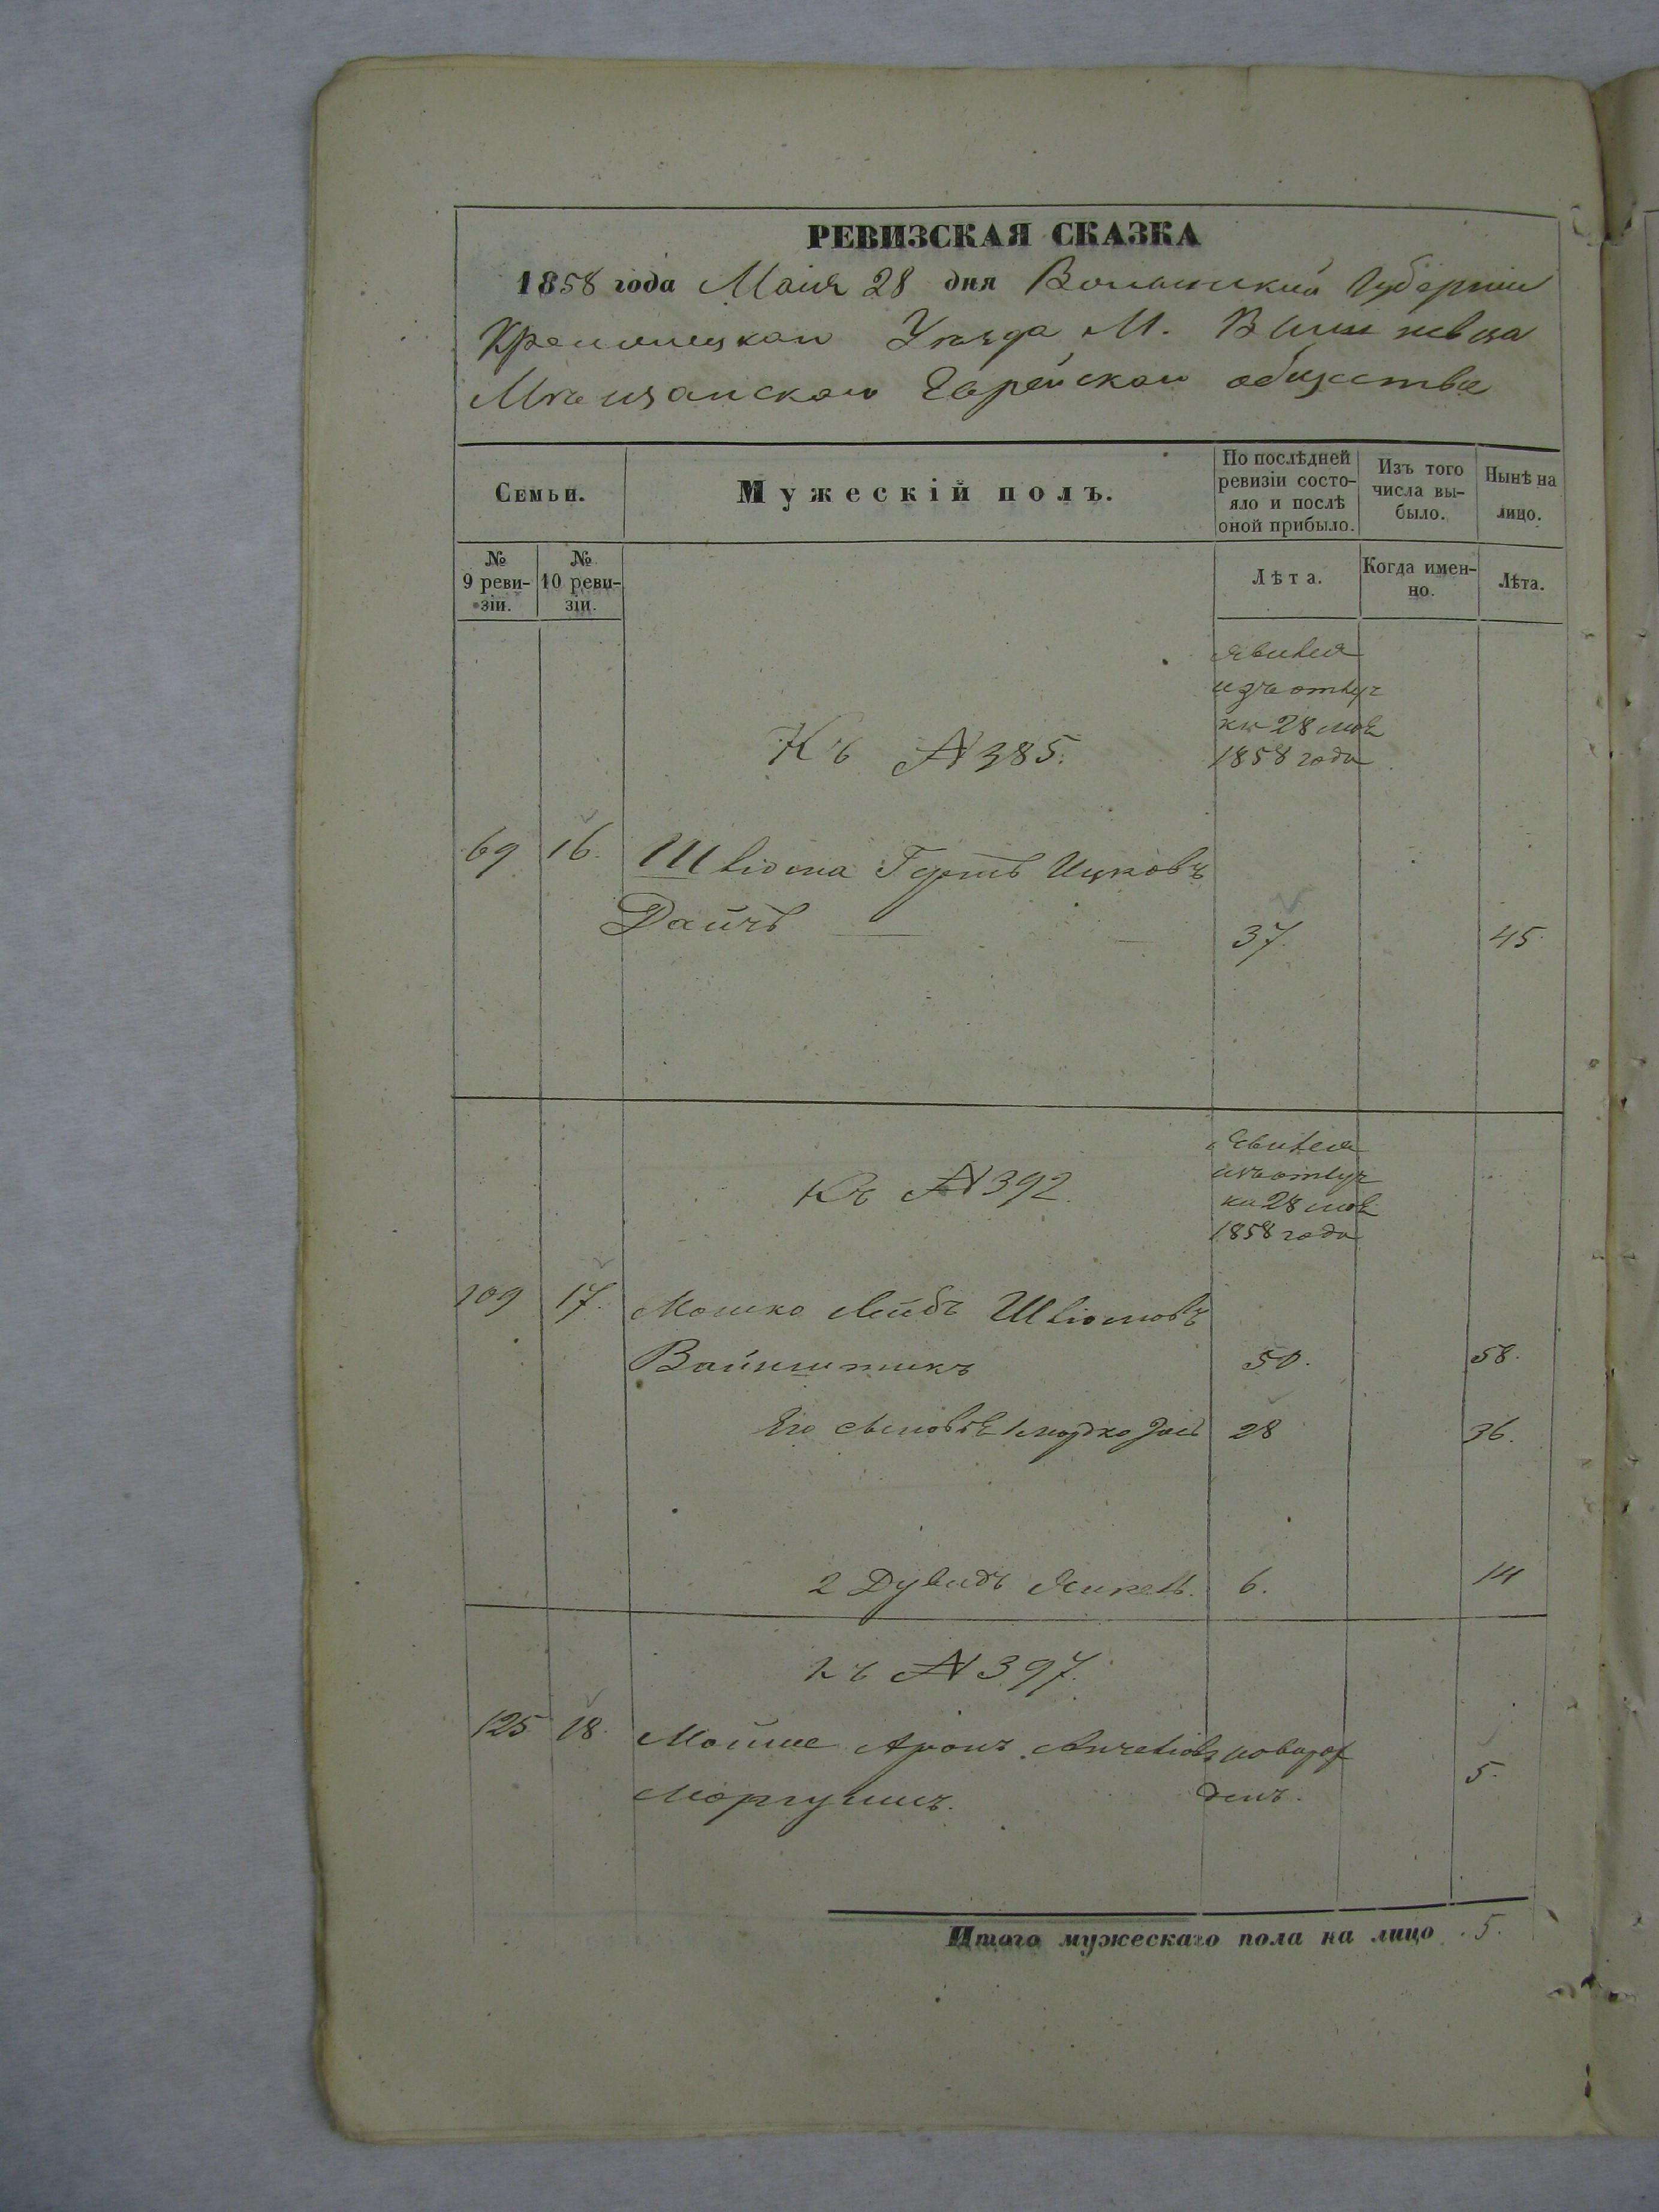 РЕВИЗСКАЯ СКАЗКА
1858 года Маия 28 дня Волынской Губернии
Кременецкаго Уезда М. Вишневца
Мещанскаго Еврейскаго общества
Семьи.
Мужескій полъ.
По послѣдней ревизіи состояло и послѣ оной прибыло.
Изъ того числа выбыло.
Нынѣ на лицо.
№ 9 ревизіи.
№ 10 ревизіи.
Лѣта.
Когда именно.
Лѣта.
явился
изъ отлуч
къ 28 мая
1858 года
Къ № 385.
69 16. Шліома Гершъ Ицковъ
Дайчъ 37. 45.
Явился
изъ отлуч
къ 28 мая
1858 года
Къ № 392.
109 17. Мошко Лейбъ Шліомовъ
Вайнштикъ 50. 58.
Его сыновья 1 Мордко 28 36.
2 Дувидъ 6. 14
Къ № 397.
125 18. Мойше Аронъ новорож
Моргулисъ. денъ. 5.
Итого мужескаго пола на лицо 5.